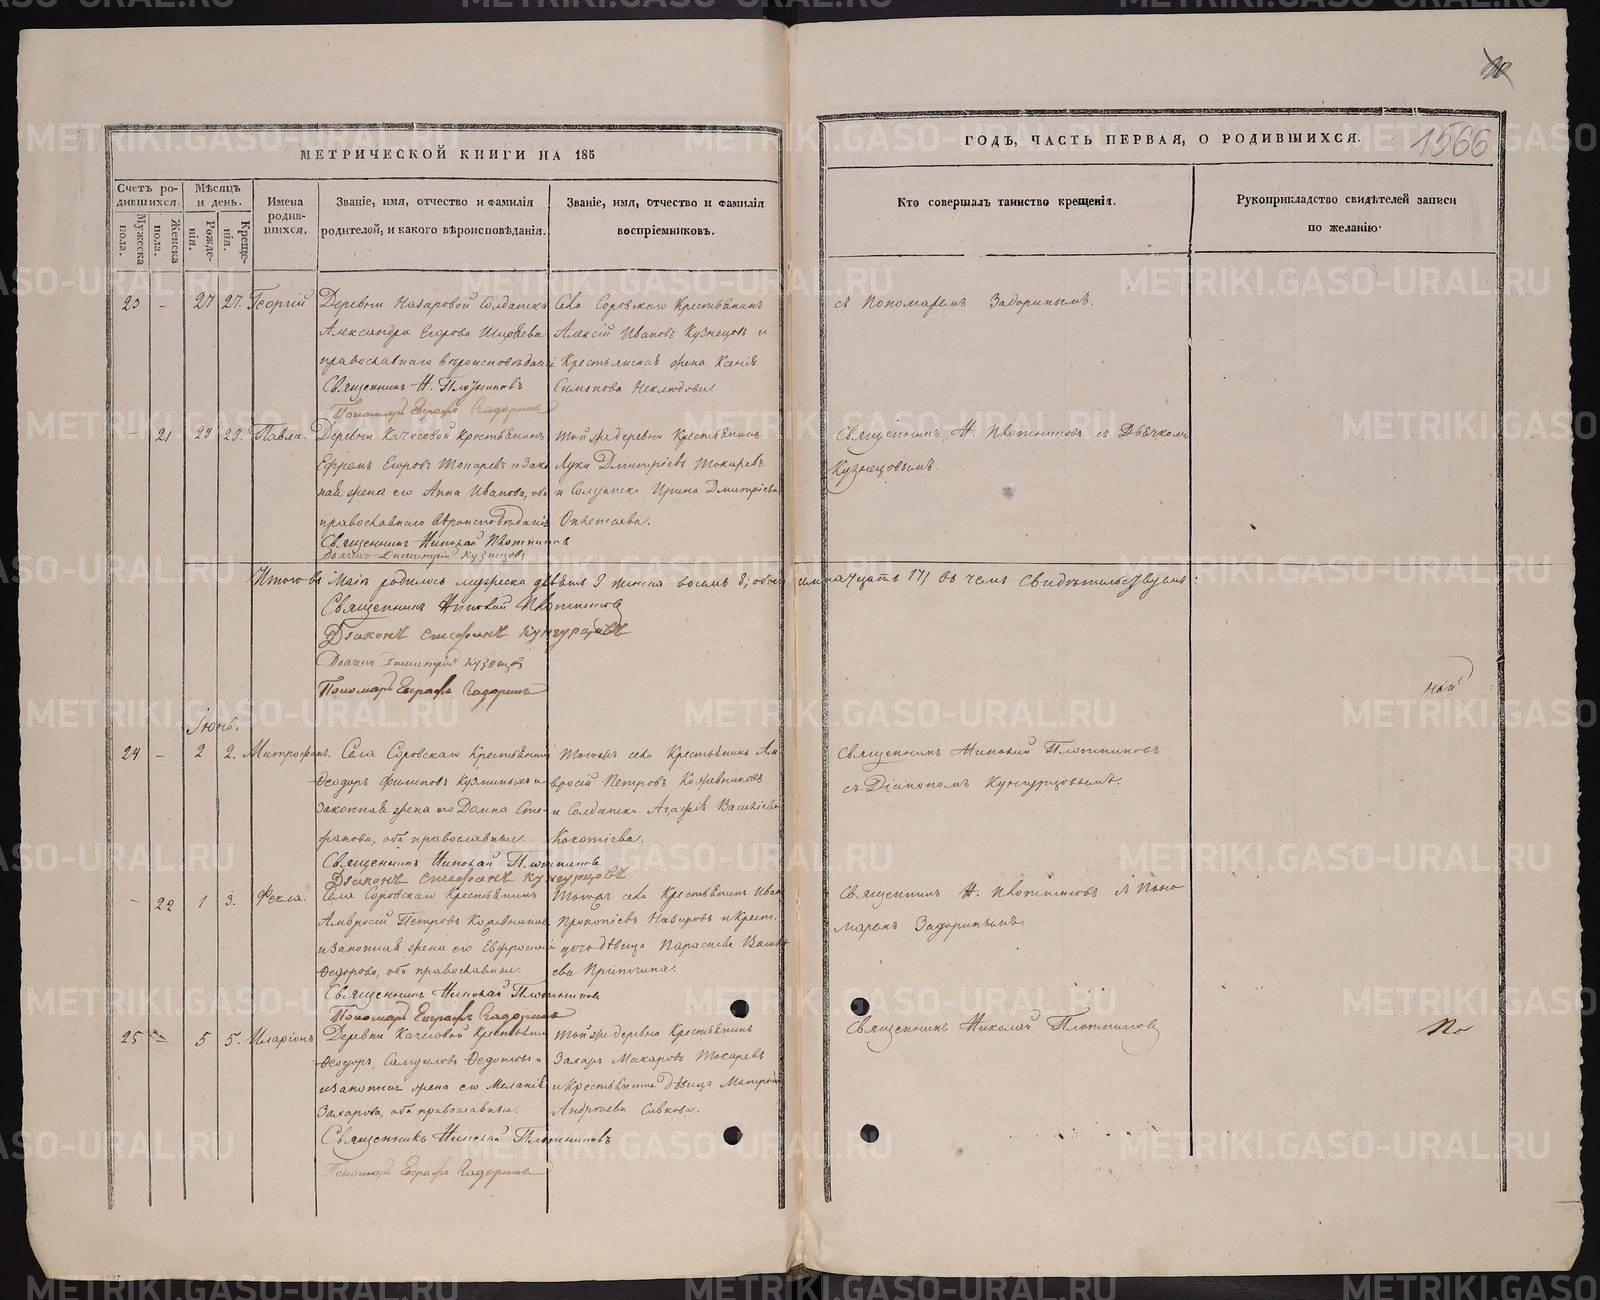 МЕТРИЧЕСКОЙ КНИГИ НА 185
Счетъ ро-
дившихся.
Мужеска
пола.
Женска
пола.
Мѣсяцъ
и день.
Рожде-
нія.
Креще-
нія.
Имена
родив-
шихся.
Званіе, имя, отчество и фамилія
родителей, и какого вѣроисповѣданія.
Званіе, имя, отчество и фамилія
воспріемниковъ.
23 - 27 27. Георгий
Деревни Назаровой Солдатка
Александра Егорова
православнаго вѣроисповѣданія
Священникъ Н. Плотниковъ
Пономарь Евграфъ Задоринъ
Села Соровскаго Крестьянинъ
Алексій Ивановъ Кузнецовъ и
Крестьянская жена Ксенія
Симонова Неклюдова.
- 21 23. Павла.
Деревни Качесовой Крестьянинъ
Ефремъ Егоровъ Токаревъ и зако
ная жена его Анна Иванова, оба
православнаго вѣроисповѣданія
Священникъ Николай Плотниковъ
Дьячекъ Димитрій Кузнецовъ
той же деревни Крестьянинъ
Лука Дмитріевъ Токаревъ
и Солдатка Ирина Дмитріева
Итого въ Маіѣ родилось мужеска девять 9 женска восемь 8; обоего
Священникъ Николай Плотниковъ
Діаконъ Стефанъ Кунгурцовъ
Дьячекъ Димитрій Кузнецовъ
Пономарь Евграфъ Задоринъ
Іюнь.
24 - 2 2. Митрофанъ.
Села Соровскаго Крестьянинъ
Ѳеодоръ Филиповъ Кузминыхъ и
Законная жена его Домна Сте-
фанова, оба православные.
Священникъ Николай Плотниковъ
Діаконъ Стефанъ Кунгурцовъ
Тогожъ села Крестьянинъ Ам-
вросій Петровъ Кожевниковъ
и Солдатка Агафія Васильева
- 22 1 3. Фекла.
Села Соровскаго Крестьянинъ
Амвросій Петровъ Кожевниковъ
и законная жена его Евфросинія
Ѳедорова, оба православные.
Священникъ Николай Плотниковъ
Пономарь Евграфъ Задоринъ
Тогожъ села Крестьянинъ Иванъ
Прокопіевъ Назаровъ и крест.
дочь дѣвица Параскева
25 - 5 5. Иларіонъ
Деревни Качесовой Крестьянинъ
Ѳеодоръ Самуиловъ
и законная жена его Меланія
Захарова, оба православные.
Священникъ Николай Плотниковъ
Пономарь Евграфъ Задоринъ
той же деревни Крестьянинъ
Захаръ Макаровъ Токаревъ
и Крестьянская дѣвица Матрона
Андреева Сивкова.
ГОДЪ, ЧАСТЬ ПЕРВАЯ, О РОДИВШИХСЯ.
1566
Кто совершалъ таинство крещенія.
Рукоприкладство свидѣтелей записи
по желанію.
съ Пономаремъ Задоринымъ.
Священникъ Н. Плотниковъ съ Дьячкомъ
Кузнецовымъ.
семнадцать 17, въ чемъ Свидѣтельствуемъ:
Священникъ Николай Плотниковъ
съ Діакономъ Кунгурцовымъ.
Священникъ Н. Плотниковъ съ Поно
маремъ Задоринымъ.
Священникъ Николай Плотниковъ
По
METRIKI.GASO-URAL.RU